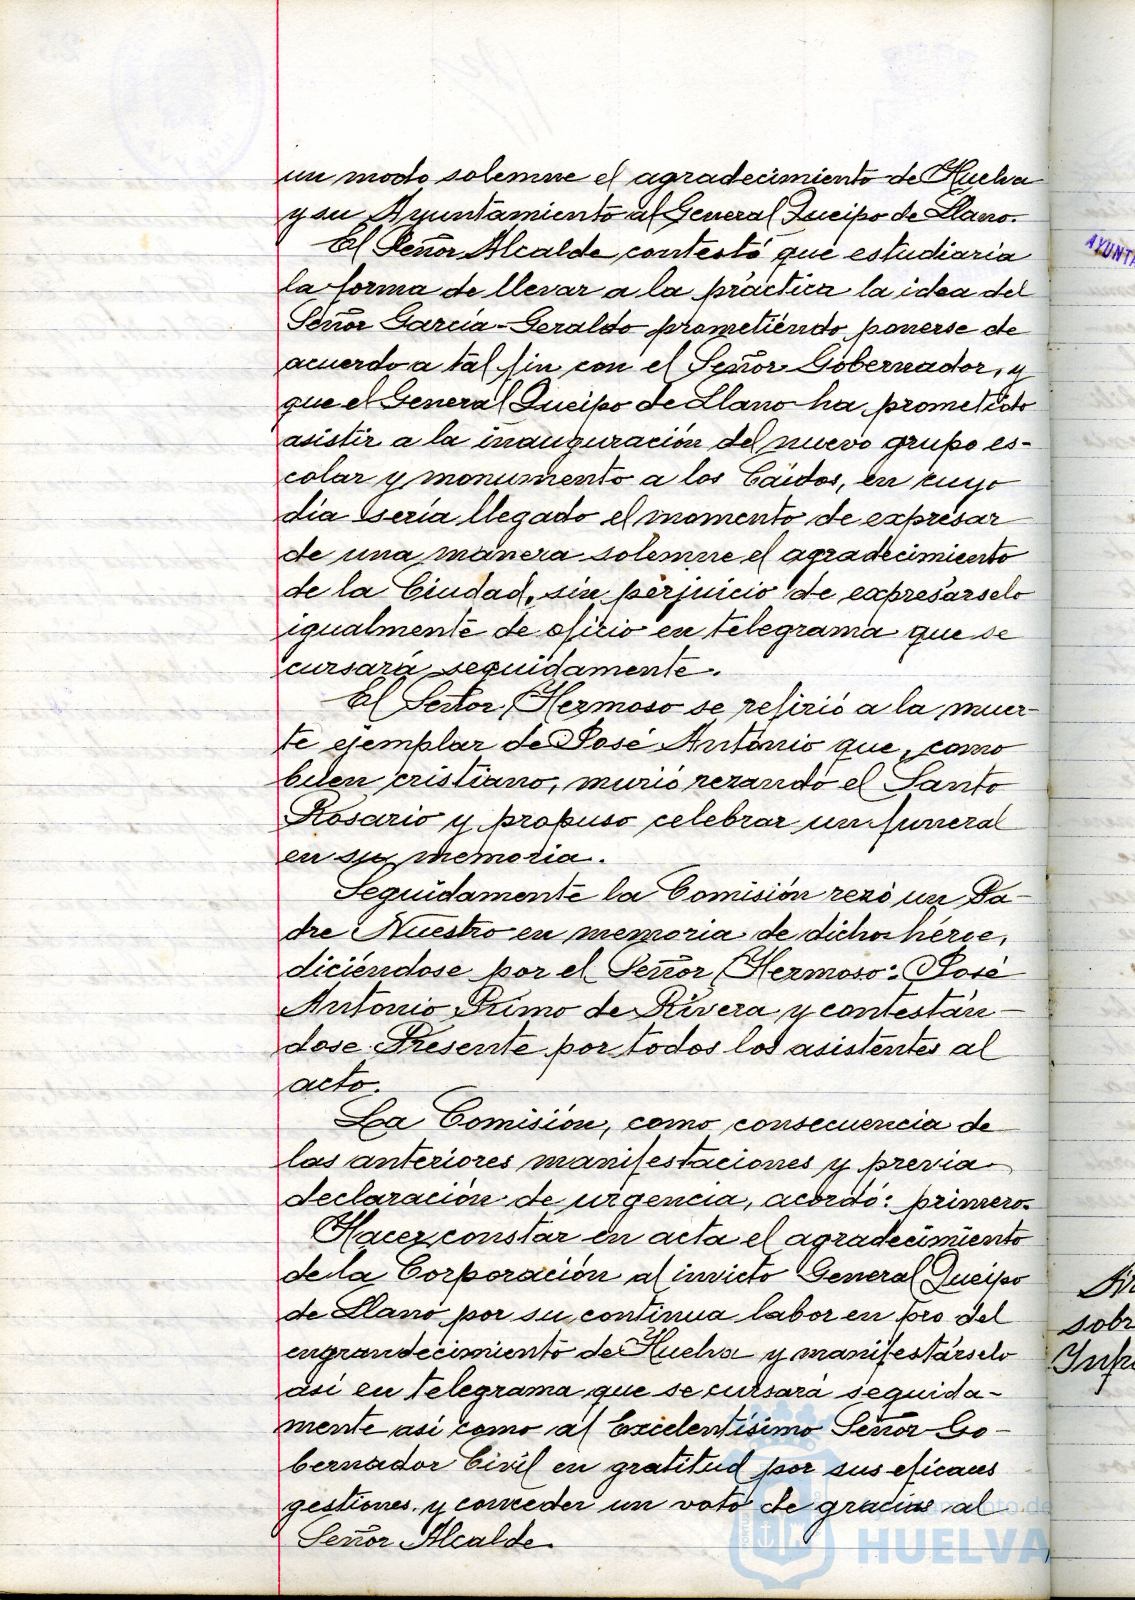 un modo solemne el agradecimiento de Huelva
y su Ayuntamiento al General Queipo de Llano.
El Señor Alcalde contestó que estudiaria
la forma de llevar a la práctica la idea del
Señor García-Geraldo prometiéndo ponerse de
acuerdo a tal fin con el Señor Gobernador, y
que el General Queipo de Llano ha prometido
asistir a la inauguración del nuevo grupo es-
colar y monumento a los Caídos, en cuyo
día sería llegado el momento de expresar
de una manera solemne el agradecimiento
de la Ciudad, sin perjuicio de expresárselo
igualmente de oficio en telegrama que se
cursará seguidamente.
El Señor Hermoso se refirió a la muer-
te ejemplar de José Antonio que, como
buen cristiano, murió rezando el Santo
Rosario y propuso celebrar un funeral
en su memoria.
Seguidamente la Comisión rezó un Pa-
dre Nuestro en memoria de dicho héroe,
diciéndose por el Señor Hermoso: José
Antonio Primo de Rivera y contestán-
dose Presente por todos los asistentes al
acto.
La Comisión, como consecuencia de
las anteriores manifestaciones y previa
declaración de urgencia, acordó: primero.
Hacer constar en acta el agradecimiento
de la Corporación al invicto General Queipo
de Llano por su continua labor en pro del
engrandecimiento de Huelva y manifestárselo
así en telegrama que se cursará seguida-
mente así como al Excelentísimo Señor Go-
bernador Civil en gratitud por sus eficaces
gestiones y conceder un voto de gracias al
Señor Alcalde.
AYUNTA
sobr
HUELVA